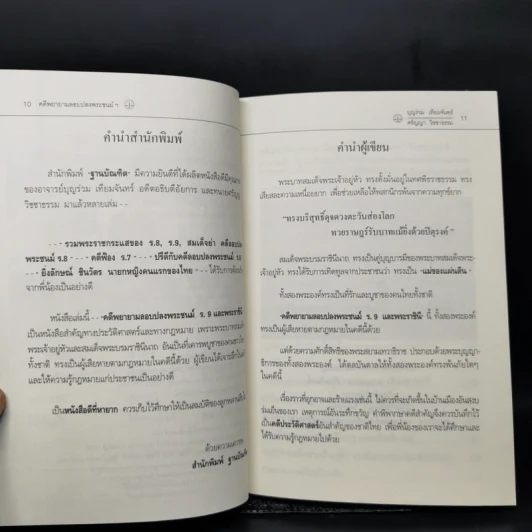 10 คดีพยายามลอบปลงพระชนม์ ฯ
คำนำสำนักพิมพ์
สำนักพิมพ์ "ฐานบัณฑิต" มีความยินดีที่ได้ผลิตหนังสือดีมีคุณภาพ
ของอาจารย์บุญร่วม เทียมจันทร์ อดีตอธิบดีอัยการ และทนายศรัญญา
วิชชาธรรม มาแล้วหลายเล่ม
รวมพระราชกระแสของ ร.8, ร.9, สมเด็จย่า คดีลอบปลง
พระชนม์ ร.8 คดีฟ้อง ร.7 ปรีดีกับคดีลอบปลงพระชนม์ ร.8
ยิ่งลักษณ์ ชินวัตร นายกหญิงคนแรกของไทย ได้รับการต้อนรับ
จากพี่น้องเป็นอย่างดี
หนังสือเล่มนี้ "คดีพยายามลอบปลงพระชนม์ ร.9 และพระราชินี"
เป็นหนังสือสำคัญทางประวัติศาสตร์และทางกฎหมาย เพราะพระบาทสมเด็จ
พระเจ้าอยู่หัวและสมเด็จพระบรมราชินีนาถ อันเป็นที่เคารพบูชาของคนไทย
ทั้งชาติ ทรงเป็นผู้เสียหายตามกฎหมายในคดีนี้ด้วย ผู้เขียนได้เจาะลึก
และให้ความรู้กฎหมายแก่ประชาชนเป็นอย่างดี
เป็นหนังสือดีที่หายาก ควรเก็บไว้ศึกษาให้เป็นสมบัติของลูกหลาน
ด้วยความเคารพ
สำนักพิมพ์ ฐานบัณฑิต
บุญร่วม เทียมจันทร์
ศรัญญา วิชชาธรรม 11
คำนำผู้เขียน
พระบาทสมเด็จพระเจ้าอยู่หัว ทรงตั้งมั่นอยู่ในทศพิธราชธรรม ทรง
เสียสละความเหนื่อยยาก เพื่อช่วยเหลือให้พสกนิกรพ้นจากความทุกข์ยาก
"ทรงบริสุทธิ์ดุจดวงตะวันส่องโลก
ทวยราษฎร์รับบาทแม้ยิ่งด้วยปิตุรงค์ "
สมเด็จพระบรมราชินีนาถ ทรงเป็นคู่บุญบารมีของพระบาทสมเด็จพระเจ้า-
อยู่หัว ทรงได้รับการเทิดทูลจากประชาชนว่า ทรงเป็น "แม่ของแผ่นดิน"
ทั้งสองพระองค์ทรงเป็นที่รักและบูชาของคนไทยทั้งชาติ
"คดีพยายามลอบปลงพระชนม์ ร.9 และพระราชินี" นี้ ทั้งสองพระองค์
ทรงเป็นผู้เสียหายตามกฎหมายในคดีนี้ด้วย
แต่ด้วยความศักดิ์สิทธิ์ของพระสยามเทวาธิราช ประกอบด้วยพระบุญญา-
ธิการของทั้งสองพระองค์ ได้ดลบันดาลให้ทั้งสองพระองค์ทรงพ้นภัยใดๆ
ในคดีนี้
เรื่องราวที่อุกอาจและร้ายแรงเช่นนี้ ไม่ควรที่จะเกิดขึ้นในบ้านเมืองอันสงบ
ร่มเย็นของเรา เหตุการณ์อันระทึกขวัญ คำพิพากษาคดีสำคัญจึงควรบันทึกไว้
เป็นคดีประวัติศาสตร์อันสำคัญของชาติไทย เพื่อพี่น้องของเราจะได้ศึกษาและ
ได้รับความรู้กฎหมายไปด้วย